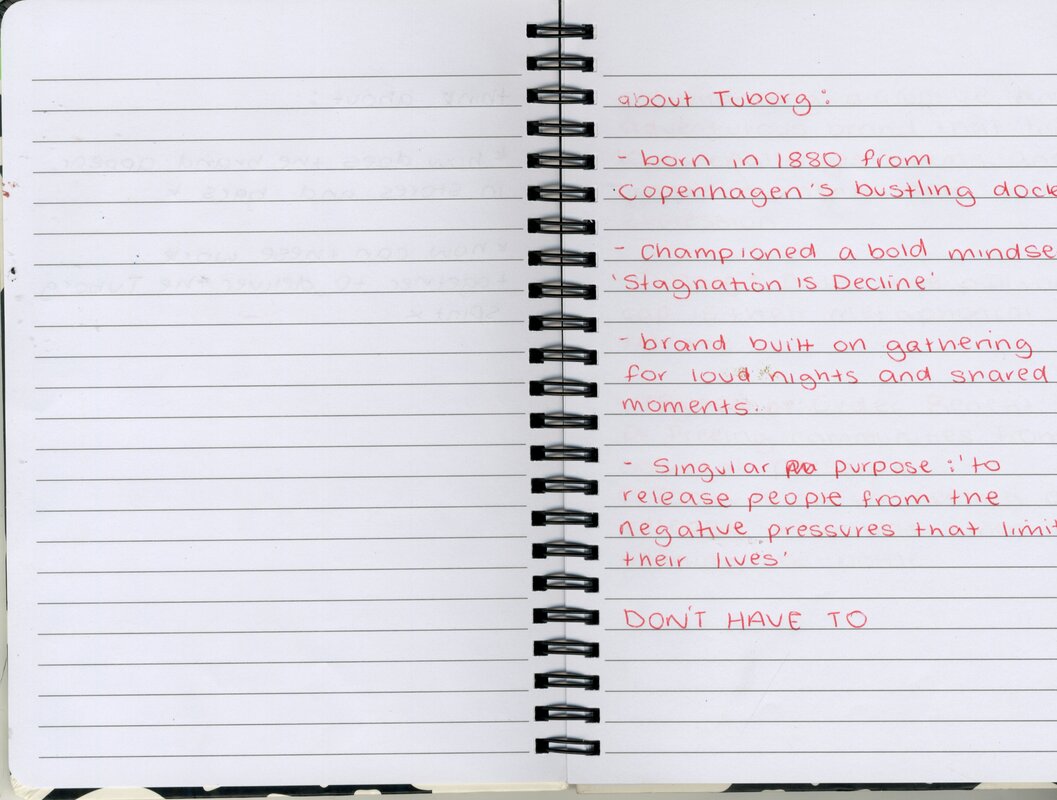 about Tuborg:
- born in 1880 from
Copenhagen's bustling dock
- Championed a bold mindse
'Stagnation is Decline'
- brand built on gathering
for loud nights and shared
moments.
- Singular purpose :'to
release people from the
negative pressures that limit
their lives'
DON'T HAVE TO